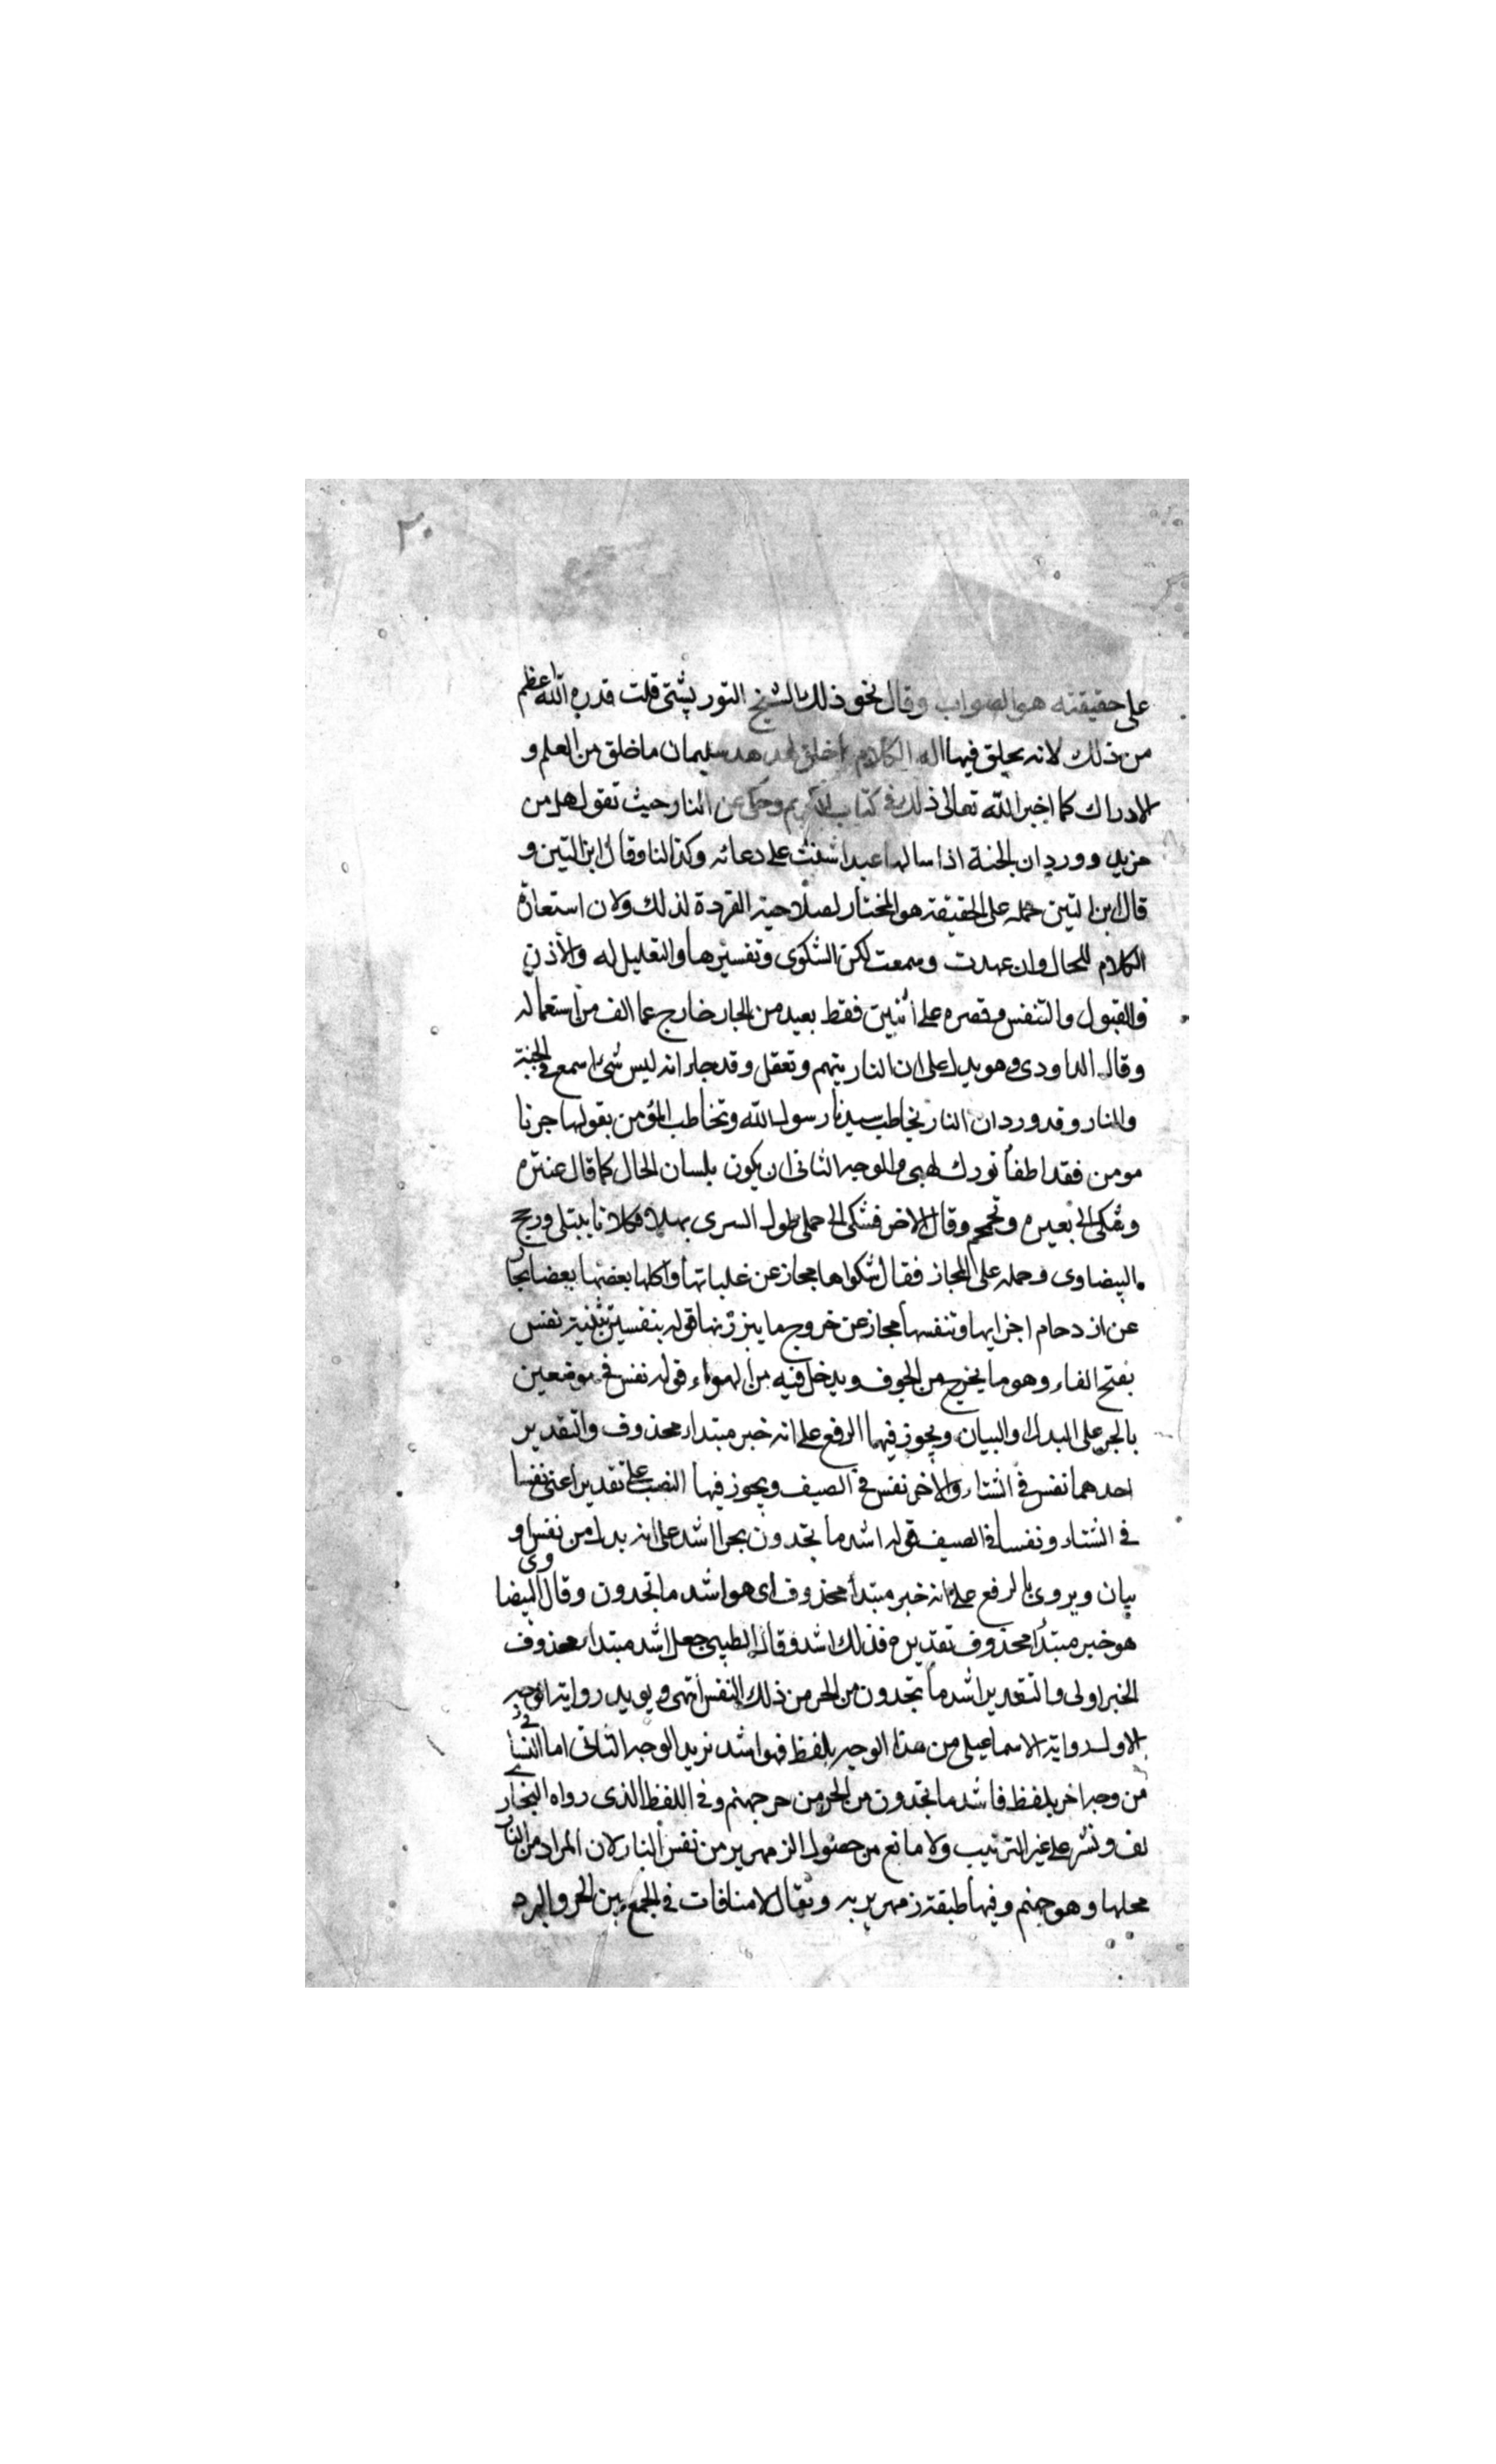 ٢٠
على حقيقته هو الصواب وقال نحو ذلك الشيخ التوربشتى قلت قدرة الله اعظم
من ذلك لانه يخلق فيها اله الكلام اخلق لهدهد سليمان ما خلق من العلم و
الادراك كما اخبر الله تعالى ذلك فى كتابه الكريم وحكى عن النار حيث تقول هل من
مزيد وورد ان الجنة اذا سالها عبدا شنث على دعائه وكذا لنا وقال ابن التين و
قال ابن التين حمله على الحقيقة هو المختار لصلاحية القردة لذلك ولان استعارة
الكلام للحال وان عهدت وسمعت لكن الشكوى وتفسيرها والتعليل له والأذن
والقبول والتنفس وقصره على اثنين فقط بعيد من المجاز خارج عما الف من استعماله
وقال الداودى وهو يدل على ان النار يتهم وتعقل وقد جاء انه ليس شئ اسمع فى الجنة
والنار وقد ورد ان النار تخاطب سيدنا رسول الله وتخاطب المؤمن بقولها جرنا
مومن فقد اطفأ نورك لهبى والوجه الثانى ان يكون بلسان الحال كما قال عنتره
وشكى الى بعيره وتحمحم وقال الاخر فشكى الى جملى طول السرى مهلا فكلانا يبتلى ورجح
البيضاوى وحمله على المجاز فقال شكواها مجاز عن غلياتها واكلها بعضها بعضا مجاز
عن ازدحام اجزايها وتنفسها مجاز عن خروج ما يبرز منها قوله بنفسين تثنية نفس
بفتح الفاء وهو ما يخرج من الجوف ويدخل فيه من الهواء قوله نفس فى موضعين
بالجر على البدل والبيان ويجوز فيهما الرفع على انه خبر مبتداء محذوف والتقدير
احدهما نفس فى الشتاء والأخر نفس فى الصيف ويجوز فيها النصب على تقدير اعنى نفسا
فى الشتاء ونفسا فى الصيف قوله اشد ما تجدون بجر الاشد على انه بدل من نفس او
بيان ويروى بالرفع على انه خبر مبتدأ محذوف اى هو اشد ما تجدون وقال البيضاوى
هو خبر مبتدأ محذوف تقديره فذلك اشد وقال الطيبى جعل اشد مبتداء محذوف
الخبر اولى والتقدير اشد ما تجدون من الحر من ذلك النفس انتهى ويويد رواية الوجه
الاول رواية الاسماعيلى من هذا الوجه بلفظ فهو اشد نريد الوجه الثانى اما النسائى فى
من وجه اخر بلفظ فاشد ما تجدون من الحر من حر جهنم وفى اللفظ الذى رواه البخارى
لف ونشر على غير الترتيب ولا مانع من حصول الزمهرير من نفس النار لان المراد من النار
محلها وهو جهنم وفيها طبقة زمهريريه ويقال لا منافات فى الجمع بين الحر والبرد